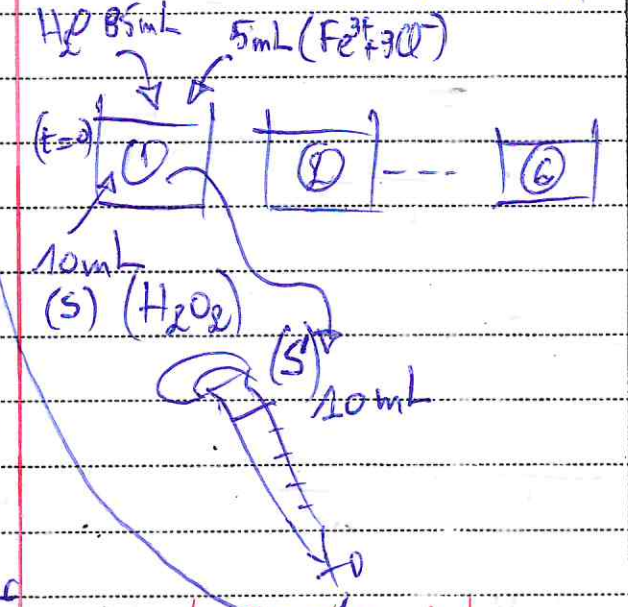 H₂O 85mL 5mL (Fe³⁺+3Cl⁻)
(t=0) ① ② ---- ⑥
10mL
(S) (H₂O₂)
(S')
10mL